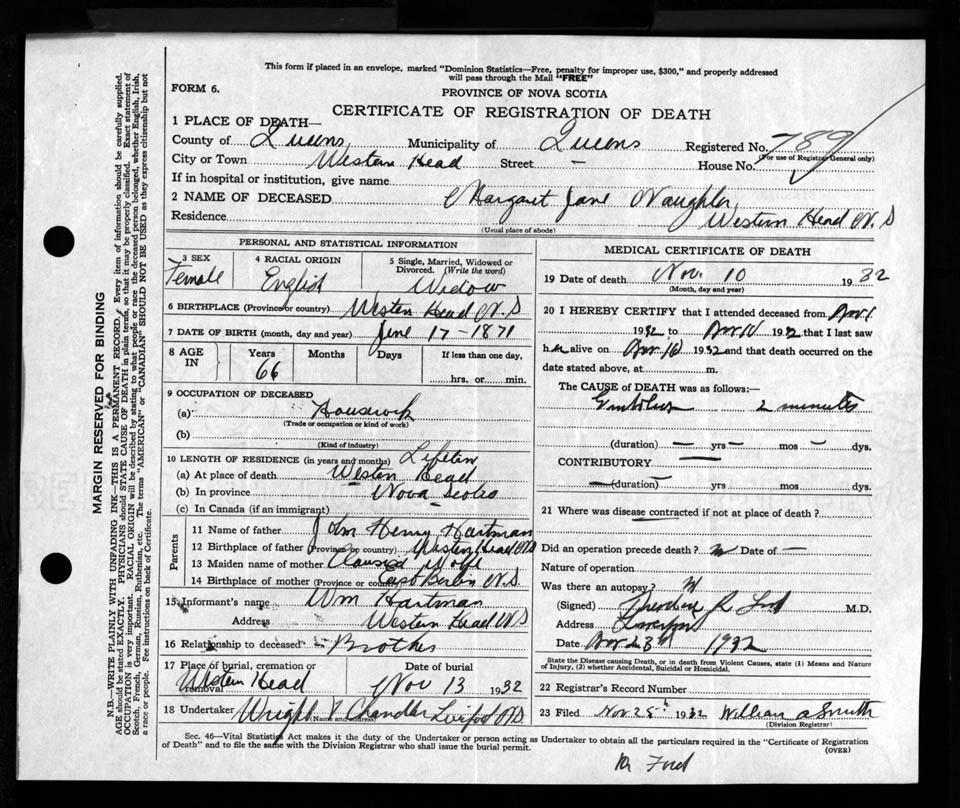 This form if placed in an envelope, marked "Dominion Statistics—Free, penalty for improper use, $300," and properly addressed
will pass through the Mail "FREE"
FORM 6.
PROVINCE OF NOVA SCOTIA
CERTIFICATE OF REGISTRATION OF DEATH
1 PLACE OF DEATH—
County of Queens Municipality of Queens Registered No. 789
City or Town Western Head Street – House No. (For use of Registrar General only)
If in hospital or institution, give name
2 NAME OF DECEASED Margaret Jane Naughler
Residence Western Head N.S
(Usual place of abode)
PERSONAL AND STATISTICAL INFORMATION
3 SEX 4 RACIAL ORIGIN 5 Single, Married, Widowed or
Divorced. (Write the word)
Female English Widow
6 BIRTHPLACE (Province or country) Western Head N.S
7 DATE OF BIRTH (month, day and year) June 17-1871
8 AGE IN Years Months Days If less than one day,
66 hrs. or min.
9 OCCUPATION OF DECEASED
(a) Housework
(Trade or occupation or kind of work)
(b)
(Kind of industry)
10 LENGTH OF RESIDENCE (in years and months)
(a) At place of death Western Head
(b) In province Nova Scotia
(c) In Canada (if an immigrant)
Parents
11 Name of father John Henry Hartman
12 Birthplace of father (Province or country) Western Head N.S
13 Maiden name of mother Wolfe
14 Birthplace of mother (Province or country) East Berlin N.S.
15 Informant's name Wm Hartman
Address Western Head N.S
16 Relationship to deceased Brother
17 Place of burial, cremation or removal Date of burial
Western Head Nov 13 1932
18 Undertaker Wright V Chandler Liverpool N.S
(Name and address)
MEDICAL CERTIFICATE OF DEATH
19 Date of death Nov. 10 1932
(Month, day and year)
20 I HEREBY CERTIFY that I attended deceased from Nov. 1
1932 to Nov 10 1932 that I last saw
her alive on Nov 10 1932 and that death occurred on the
date stated above, at m.
The CAUSE of DEATH was as follows:—
Embolism 2 minutes
(duration) — yrs — mos — dys.
CONTRIBUTORY —
(duration) — yrs — mos — dys.
21 Where was disease contracted if not at place of death?
Did an operation precede death? no Date of —
Nature of operation
Was there an autopsy?
(Signed) M.D.
Address Liverpool
Date Nov 23rd 1932
State the Disease causing Death, or in death from Violent Causes, state (1) Means and Nature
of Injury, (2) whether Accidental, Suicidal or Homicidal.
22 Registrar's Record Number
23 Filed Nov 25 1932 William A Smith
(Division Registrar)
Sec. 46—Vital Statistics Act makes it the duty of the Undertaker or person acting as Undertaker to obtain all the particulars required in the "Certificate of Registration
of Death" and to file the same with the Division Registrar who shall issue the burial permit.
(OVER)
Dr Ford
MARGIN RESERVED FOR BINDING
N.B.—WRITE PLAINLY WITH UNFADING INK—THIS IS A PERMANENT RECORD. Every item of information should be carefully supplied.
AGE should be stated EXACTLY. PHYSICIANS should STATE CAUSE OF DEATH in plain terms, so that it may be properly classified. Exact statement of
OCCUPATION is very important. RACIAL ORIGIN will be described by stating to what people or race the deceased person belonged, whether English, Irish,
Scotch, French, German, Russian, Ruthenian, etc. The terms "AMERICAN" or "CANADIAN" SHOULD NOT BE USED as they express citizenship but not
a race or people. See instructions on back of Certificate.